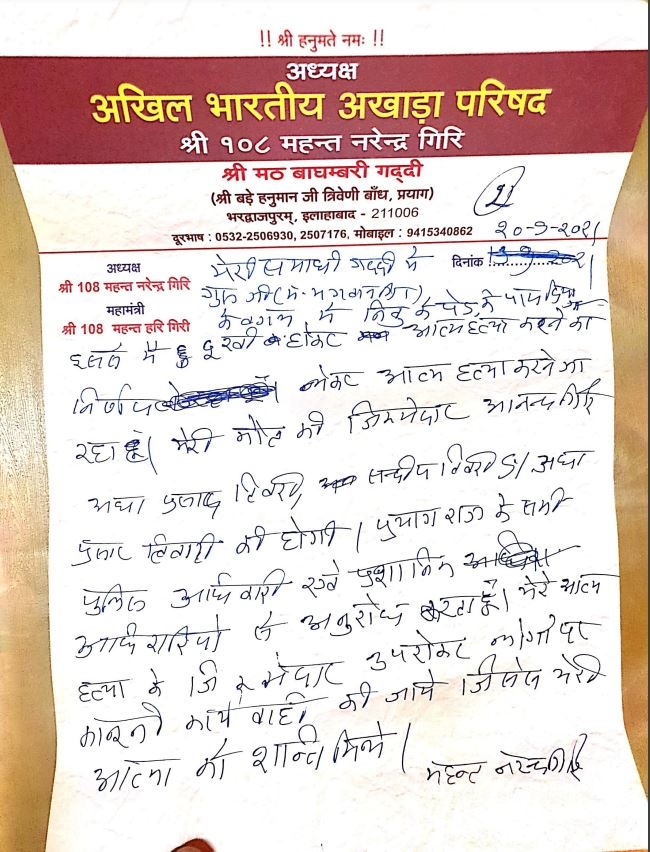 !! श्री हनुमते नमः !!
अध्यक्ष
अखिल भारतीय अखाड़ा परिषद
श्री १०८ महन्त नरेन्द्र गिरि
श्री मठ बाघम्बरी गद्दी
(श्री बड़े हनुमान जी त्रिवेणी बाँध, प्रयाग)
भरद्वाजपुरम्, इलाहाबाद - 211006
दूरभाष : 0532-2506930, 2507176, मोबाइल : 9415340862
२०-९-२०२१
दिनांक :
अध्यक्ष
श्री 108 महन्त नरेन्द्र गिरि
महामंत्री
श्री 108 महन्त हरि गिरी
मेरी समाधी गद्दी मे
गुरु जी
के बगल में निबू के पेड़ के पास दिया जाए
मै दुखी होकर आत्महत्या करने का
निर्णय लेकर आत्म हत्या करने जा
रहा हूँ। मेरी मौत की जिम्मेदार आनन्द गिरि
अधा प्रसाद तिवारी, सन्दीप तिवारी S/ अधा
प्रसाद तिवारी की होगी। प्रयाग राज के सभी
पुलिस अधिकारी एवं प्रशासनिक
से अनुरोध करता हूँ। मेरे आत्म
हत्या के जिम्मेदार उपरोक्त लोगो पर
कानूनी कार्यवाही की जाये। जिससे मेरी
आत्मा को शान्ति मिले।
महन्त नरेन्द्र गिरि